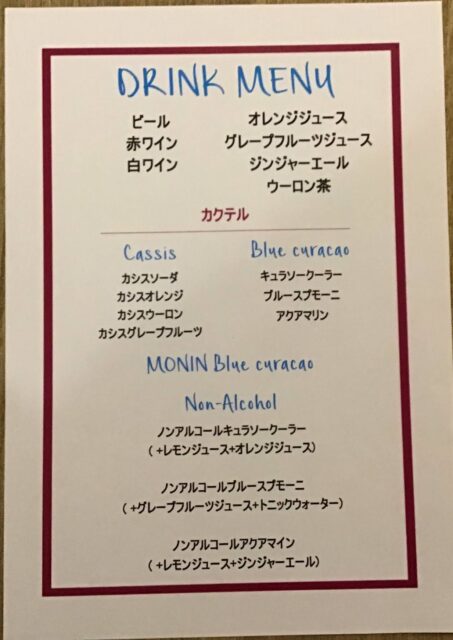 DRINK MENU
ビール
赤ワイン
白ワイン
オレンジジュース
グレープフルーツジュース
ジンジャーエール
ウーロン茶
カクテル
Cassis
カシスソーダ
カシスオレンジ
カシスウーロン
カシスグレープフルーツ
Blue curacao
キュラソークーラー
ブルースプモーニ
アクアマリン
MONIN Blue curacao
Non-Alcohol
ノンアルコールキュラソークーラー
(+レモンジュース+オレンジジュース)
ノンアルコールブルースプモーニ
(+グレープフルーツジュース+トニックウォーター)
ノンアルコールアクアマイン
(+レモンジュース+ジンジャーエール)